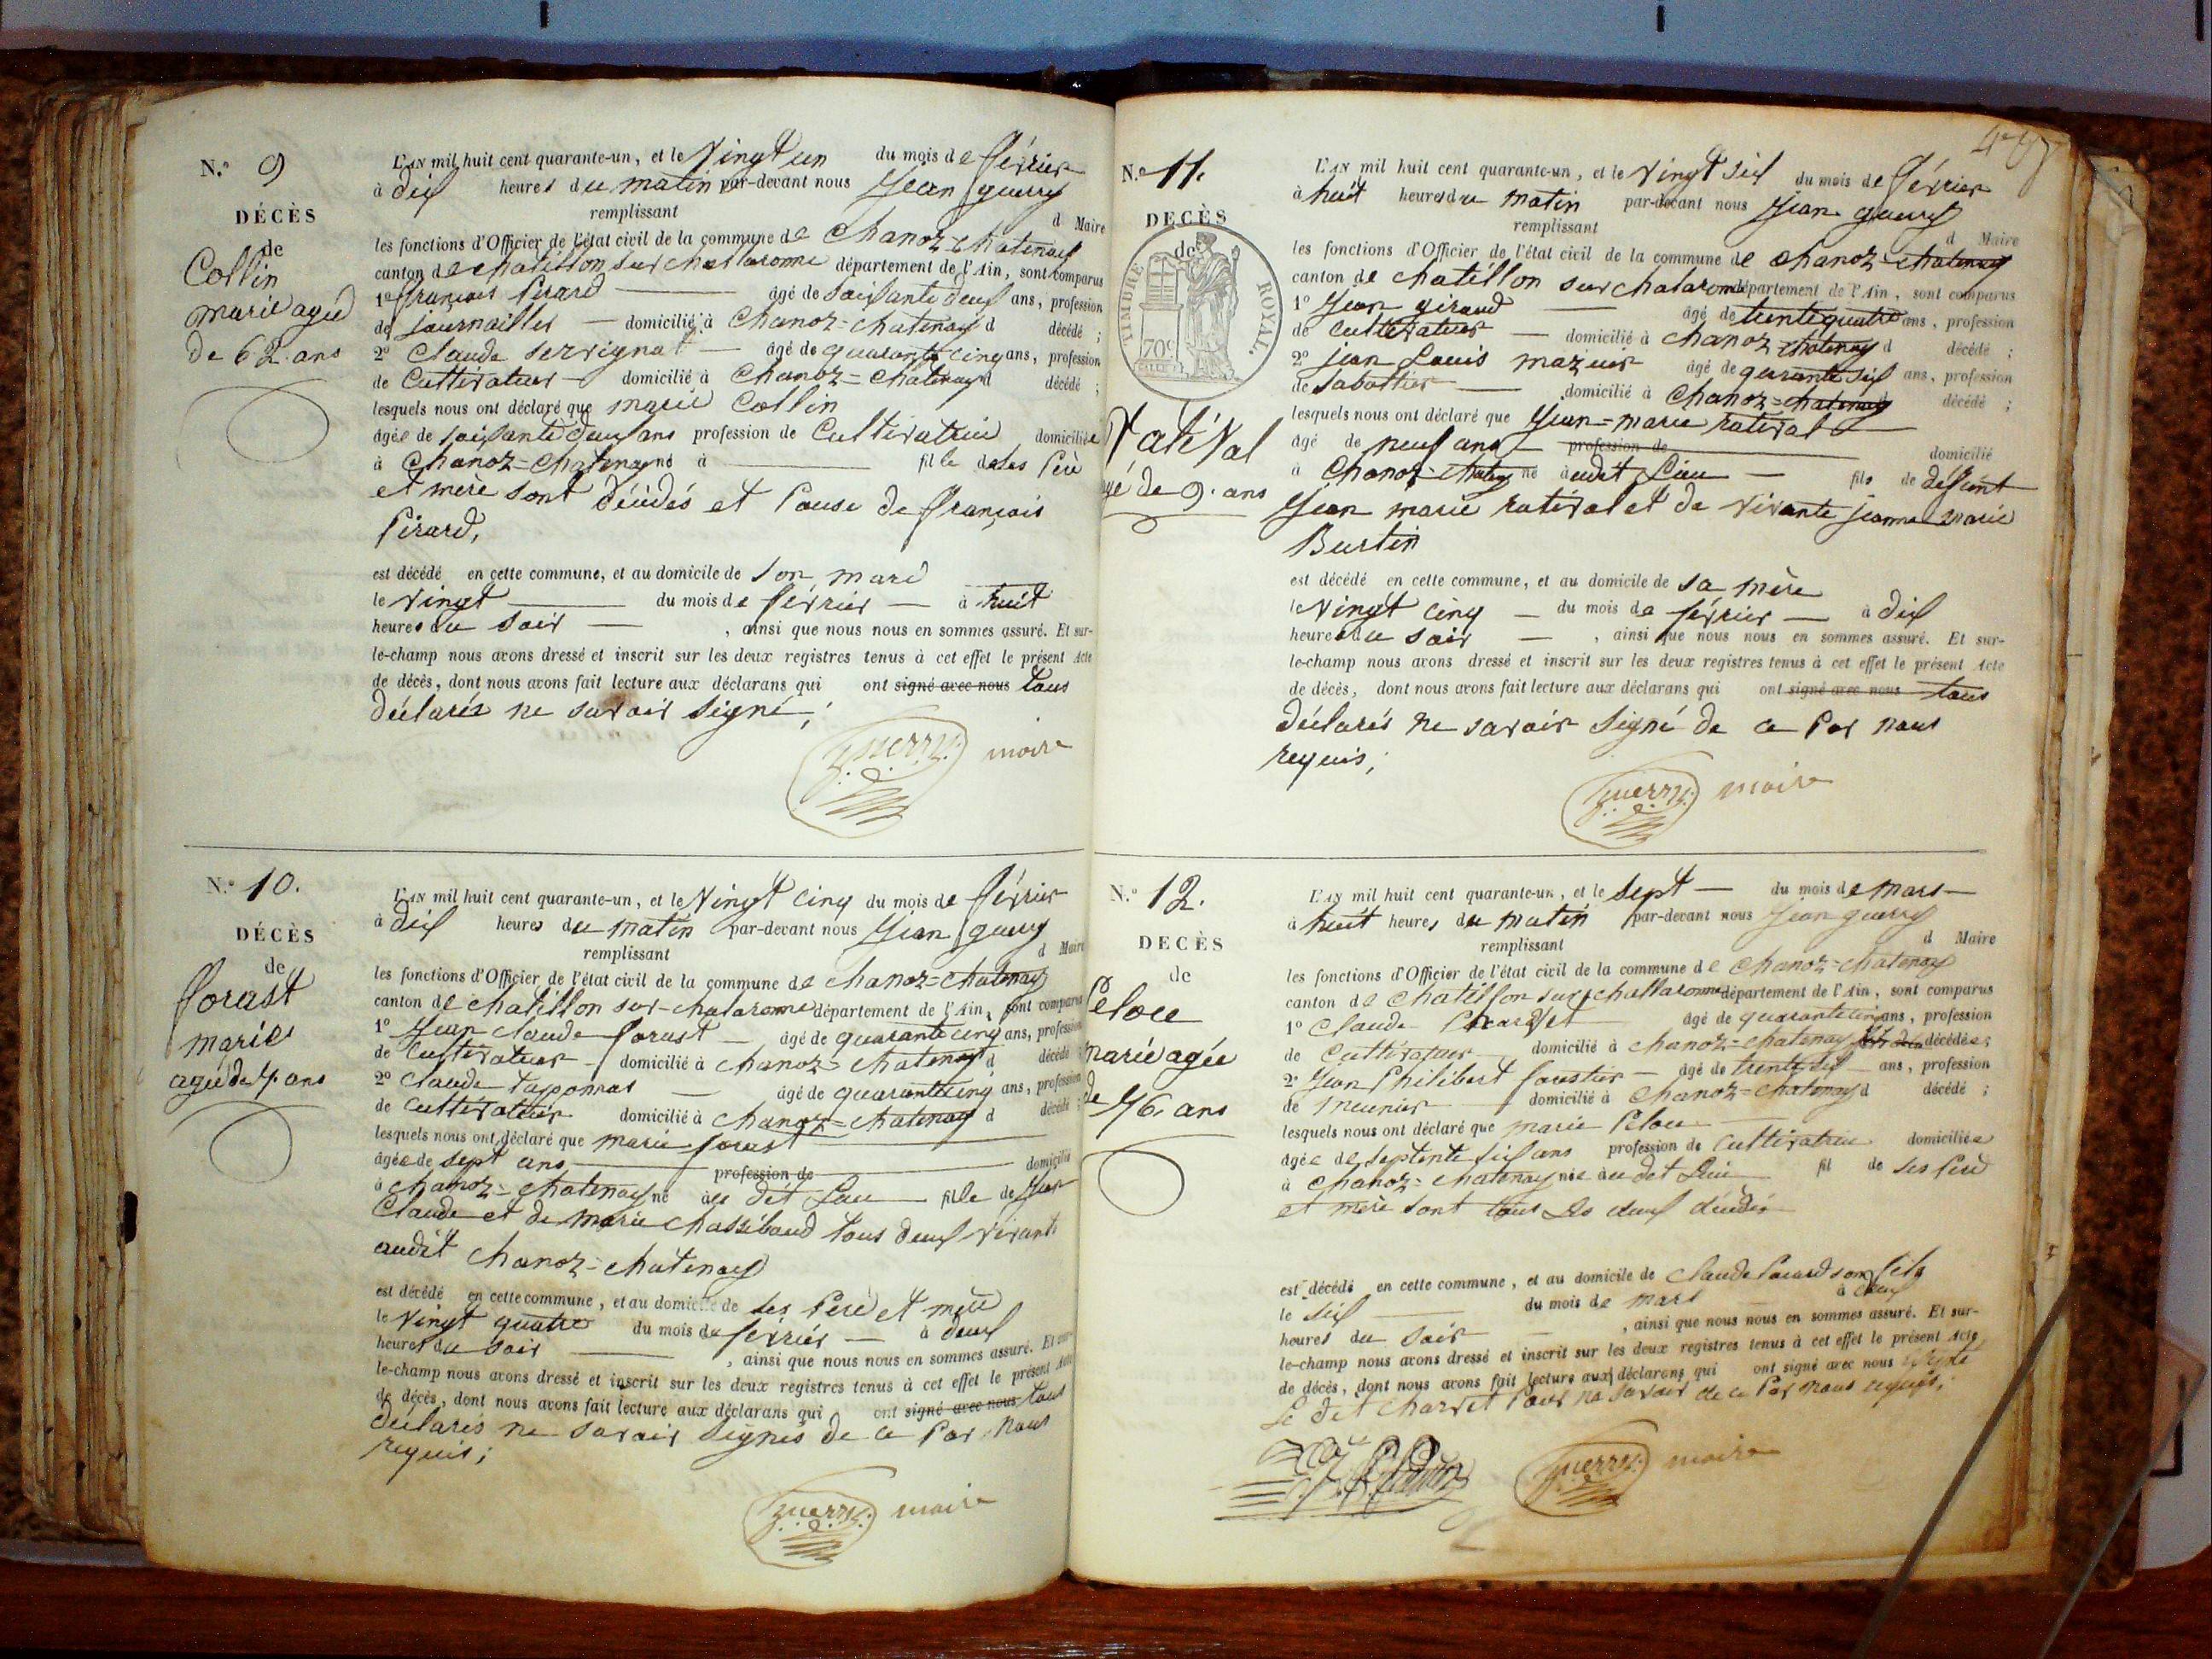 N.° 9
DÉCÈS
de
Collin
marie agée
de 62 ans
L'AN mil huit cent quarante-un, et le Vingt un du mois de février
à dix heures du matin par-devant nous Jean guerry
remplissant d Maire
les fonctions d'Officier de l'état civil de la commune de Chanoz-chatenay
canton de chatillon sur chalaronne département de l'Ain, sont comparus
1° françois Pirard âgé de soixante deux ans, profession
de journailler domicilié à Chanoz=chatenay d décédé ;
2° Claude Servignat âgé de quarante cinq ans, profession
de Cultivateur domicilié à Chanoz=chatenay d décédé ;
lesquels nous ont déclaré que marie Collin
âgée de soixante deux ans profession de Cultivatrice domiciliée
à Chanoz=chatenay né à fille de ses Père
et mère sont décédés et Pouse de françois
Pirard,
est décédé en cette commune, et au domicile de son mari
le Vingt du mois de février à huit
heures du soir , ainsi que nous nous en sommes assuré. Et sur-
le-champ nous avons dressé et inscrit sur les deux registres tenus à cet effet le présent Acte
de décès, dont nous avons fait lecture aux déclarans qui ont signé avec nous tous
déclarés ne savoir signé ;
guerry maire
N.° 10.
DÉCÈS
de
forast
marie
agée de 7 ans
L'AN mil huit cent quarante-un, et le Vingt cinq du mois de février
à dix heures du matin par-devant nous Jean guerry
remplissant d Maire
les fonctions d'Officier de l'état civil de la commune de chanoz=chatenay
canton de chatillon sur-chalaronne département de l'Ain, sont comparus
1° Jean claude forast âgé de quarante cinq ans, profession
de Cultivateur domicilié à chanoz=chatenay d décédé
2° Claude taponnas âgé de quarante cinq ans, profession
de Cultivateur domicilié à chanoz=chatenay d décédé
lesquels nous ont déclaré que marie forast
âgée de sept ans profession de domicilié
à chanoz=chatenay né au dit Lieu fille de Jean
Claude et de marie chassibaud tous deux vivants
audit chanoz=chatenay
est décédé en cette commune, et au domicile de ses Père et mère
le Vingt quatre du mois de février à deux
heures du soir , ainsi que nous nous en sommes assuré. Et sur-
le-champ nous avons dressé et inscrit sur les deux registres tenus à cet effet le présent Acte
de décès, dont nous avons fait lecture aux déclarans qui ont signé avec nous tous
déclarés ne savoir signés de ce Par nous
requis ;
guerry maire
N.° 11.
DECÈS
de
TIMBRE ROYAL.
70c
ratival
agé de 9 ans
L'AN mil huit cent quarante-un, et le Vingt six du mois de février
à huit heures du matin par-devant nous Jean guerry
remplissant d Maire
les fonctions d'Officier de l'état civil de la commune de chanoz=chatenay
canton de chatillon sur chalaronne département de l'Ain, sont comparus
1° Jean giraud âgé de trente quatre ans, profession
de Cultivateur domicilié à chanoz chatenay d décédé ;
2° jean Louis mazuer âgé de quarante six ans, profession
de Sabottier domicilié à Chanoz=chatenay décédé ;
lesquels nous ont déclaré que Jean=marie ratival
âgé de neuf ans profession de domicilié
à Chanoz=chatenay né audit Lieu fils de deffunt
Jean marie ratival et de vivante jeanne marie
Burtin
est décédé en cette commune, et au domicile de sa mère
le Vingt cinq du mois de février à dix
heures du soir , ainsi que nous nous en sommes assuré. Et sur-
le-champ nous avons dressé et inscrit sur les deux registres tenus à cet effet le présent Acte
de décès, dont nous avons fait lecture aux déclarans qui ont signé avec nous tous
déclarés ne savoir signé de ce Par nous
requis ;
guerry maire
N.° 12.
DECÈS
de
Pelou
marie agée
de 76 ans
L'AN mil huit cent quarante-un, et le sept du mois de mars
à huit heures du matin par-devant nous Jean guerry
remplissant d Maire
les fonctions d'Officier de l'état civil de la commune de chanoz=chatenay
canton de chatillon sur challaronne département de l'Ain, sont comparus
1° Claude âgé de quarante cinq ans, profession
de Cultivateur domicilié à chanoz=chatenay décédée ;
2° Jean Philibert forestier âgé de trente six ans, profession
de meunier domicilié à chanoz=chatenay d décédé ;
lesquels nous ont déclaré que marie Pelou
âgée de septente six ans profession de Cultivatrice domiciliée
à chanoz=chatenay née au dit Lieu fil de ses Père
et mère sont tous les deux décédés
est décédé en cette commune, et au domicile de Claude son fils
le six du mois de mars à deux
heures du soir , ainsi que nous nous en sommes assuré. Et sur-
le-champ nous avons dressé et inscrit sur les deux registres tenus à cet effet le présent Acte
de décès, dont nous avons fait lecture aux déclarans qui ont signé avec nous
Le dit Pour ne savoir de ce Par nous requis ;
guerry maire